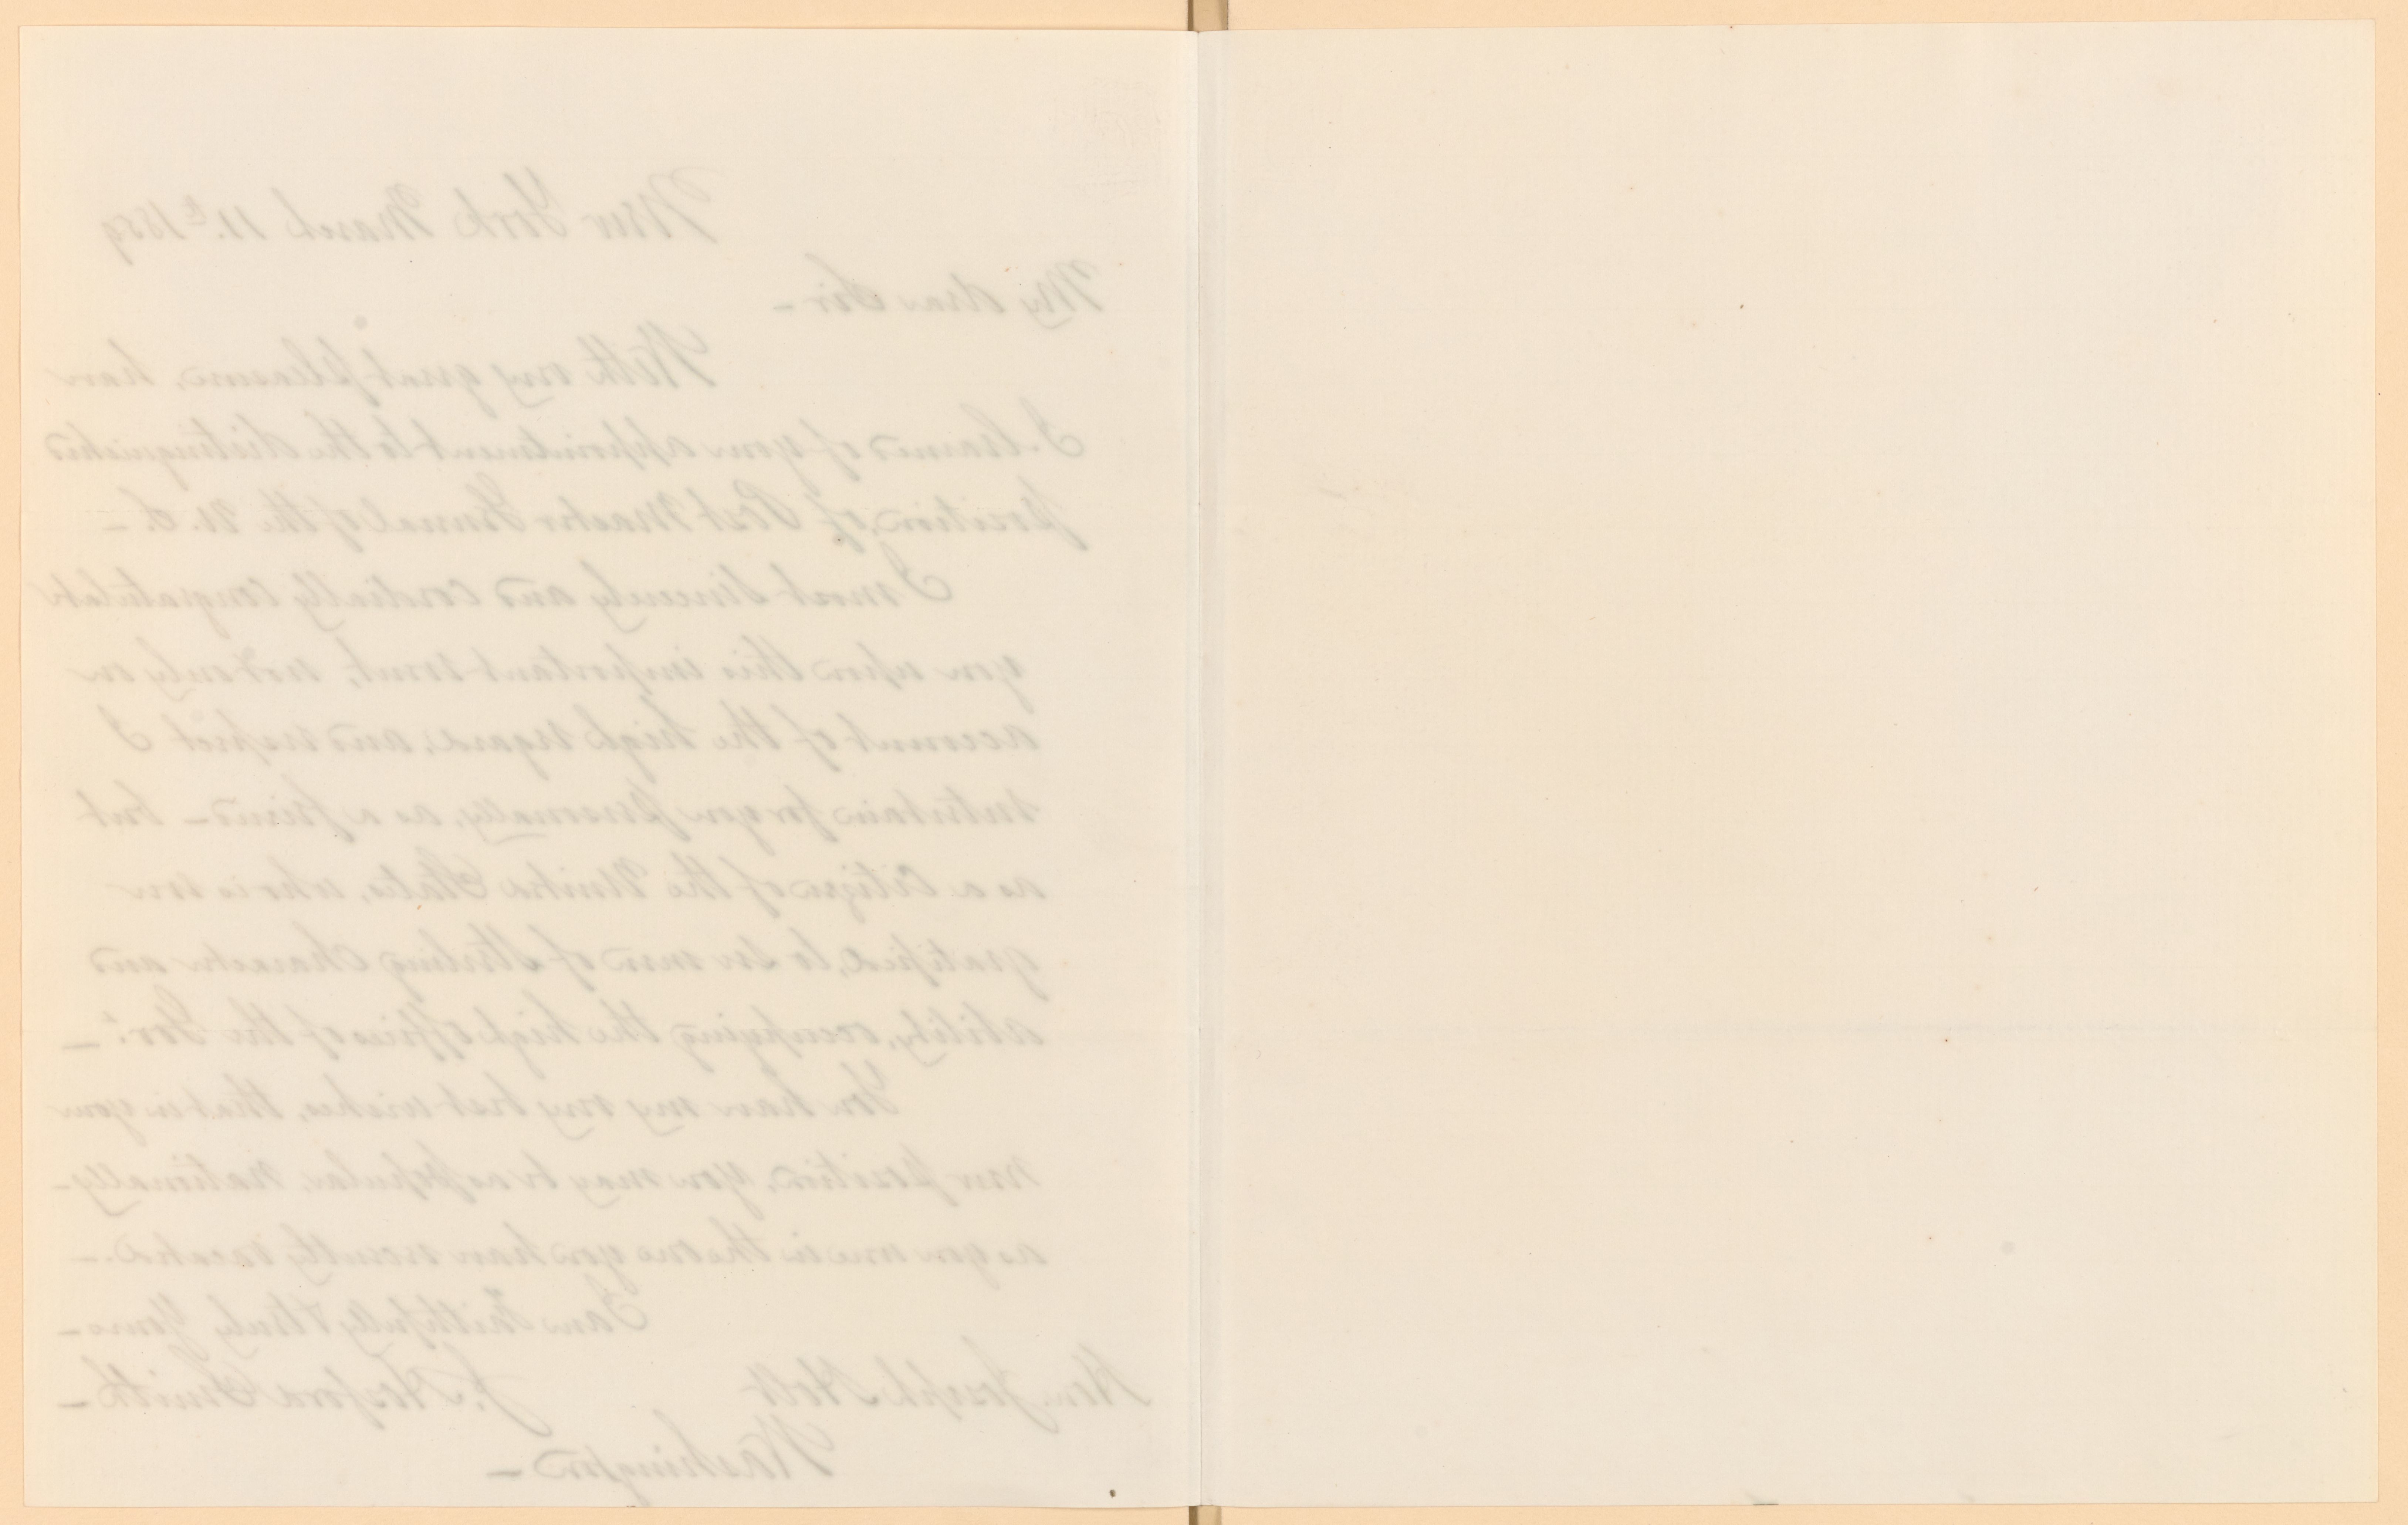 New York March 11.th 1859
My dear Sir –
With very great pleasure, have
I learned of your appointment to the distinguished
position, of Post Master General of the U.S. –
I most sincerely and cordially congratulate
you upon this important event, not only on
account of the high regard, and respect I
entertain for you personally, as a friend – but
as a Citizen of the United States, who is ever
gratified, to see men of Sterling character and
ability, occupying the high offices of the Gov.t –
You have my very best wishes, that in your
new position, you may be as popular, nationally –
as you were in the one you have recently vacated. –
I am faithfully & truly Yours –
J. Hosford Smith –
Hon. Joseph Holt
Washington –